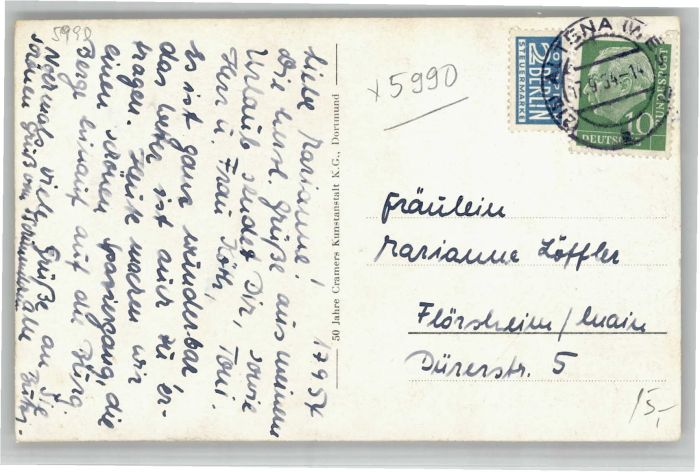 5990
Liebe Marianne! 17.9.54
Die herzl. Grüße aus meinem
Urlaub sendet Dir, sowie
Herr u. Frau Toni
Es ist ganz wunderbar,
das Wetter ist auch zu er-
tragen. Heute waren wir
einen schönen Spaziergang, die
Berge hinauf auf die Burg
Nochmals viele Grüße an Sie
alle
schönen Gruß von
50 Jahre Cramers Kunstanstalt K.G., Dortmund
x5990
NOTOPFER
2 BERLIN
STEUERMARKE
ALTENA (W
54-14
10
DEUTSCHE
BUNDESPOST
Fräulein
Marianne Löffler
Flörsheim/Main
Dürerstr. 5
15,-